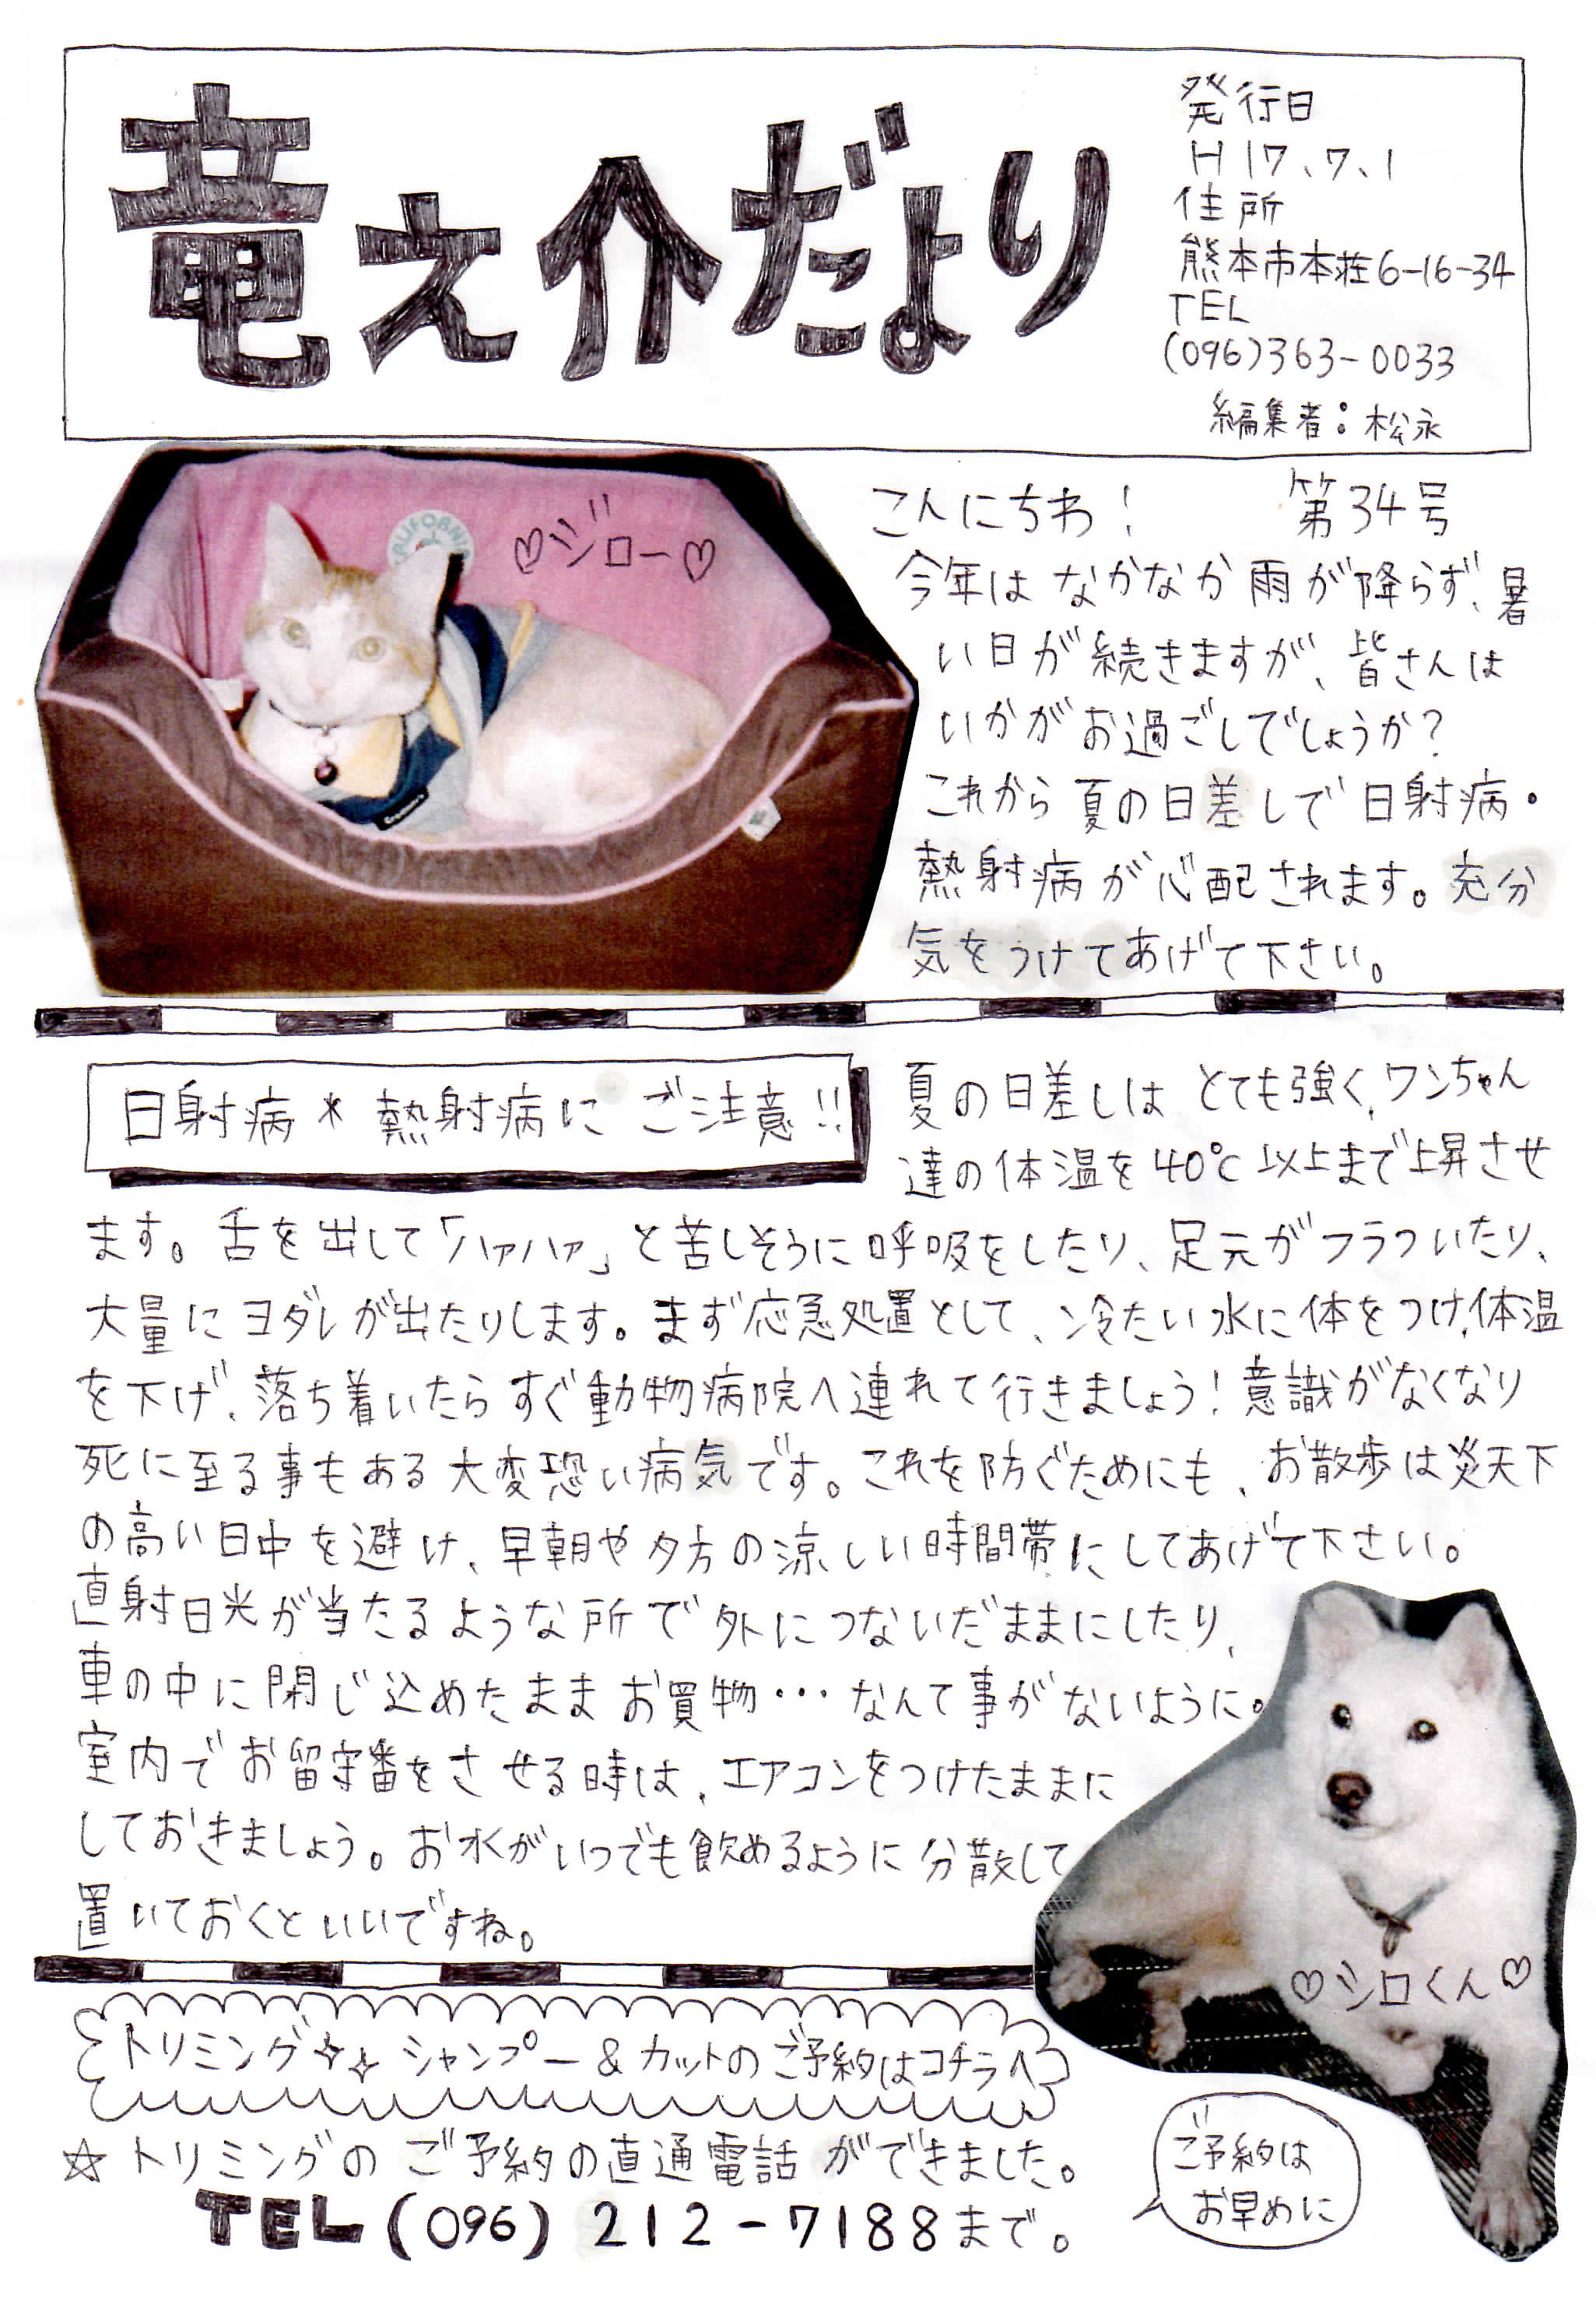 竜之介だより
発行日
H17.7.1
住所
熊本市本荘6-16-34
TEL
(096)363-0033
編集者:松永
CALIFORNIA
♡ジロー♡
こんにちわ! 第34号
今年は なかなか雨が降らず、暑
い日が続きますが、皆さんは
いかがお過ごしでしょうか?
これから夏の日差しで日射病・
熱射病が心配されます。充分
気をつけてあげて下さい。
日射病*熱射病に ご注意!!
夏の日差しは とても強く、ワンちゃん
達の体温を40℃以上まで上昇させ
ます。舌を出して「ハァハァ」と苦しそうに呼吸をしたり、足元がフラついたり、
大量にヨダレが出たりします。まず応急処置として、冷たい水に体をつけ、体温
を下げ、落ち着いたらすぐ動物病院へ連れて行きましょう!意識がなくなり
死に至る事もある大変恐い病気です。これを防ぐためにも、お散歩は炎天下
の高い日中を避け、早朝や夕方の涼しい時間帯にしてあげて下さい。
直射日光が当たるような所で外につないだままにしたり、
車の中に閉じ込めたままお買物・・・なんて事がないように。
室内でお留守番をさせる時は、エアコンをつけたままに
しておきましょう。お水がいつでも飲めるように分散して
置いておくといいですね。
♡シロくん♡
トリミング✧✧ シャンプー&カットのご予約はコチラへ
☆トリミングの ご予約の直通電話ができました。
TEL(096)212-7188まで。
ご予約は
お早めに